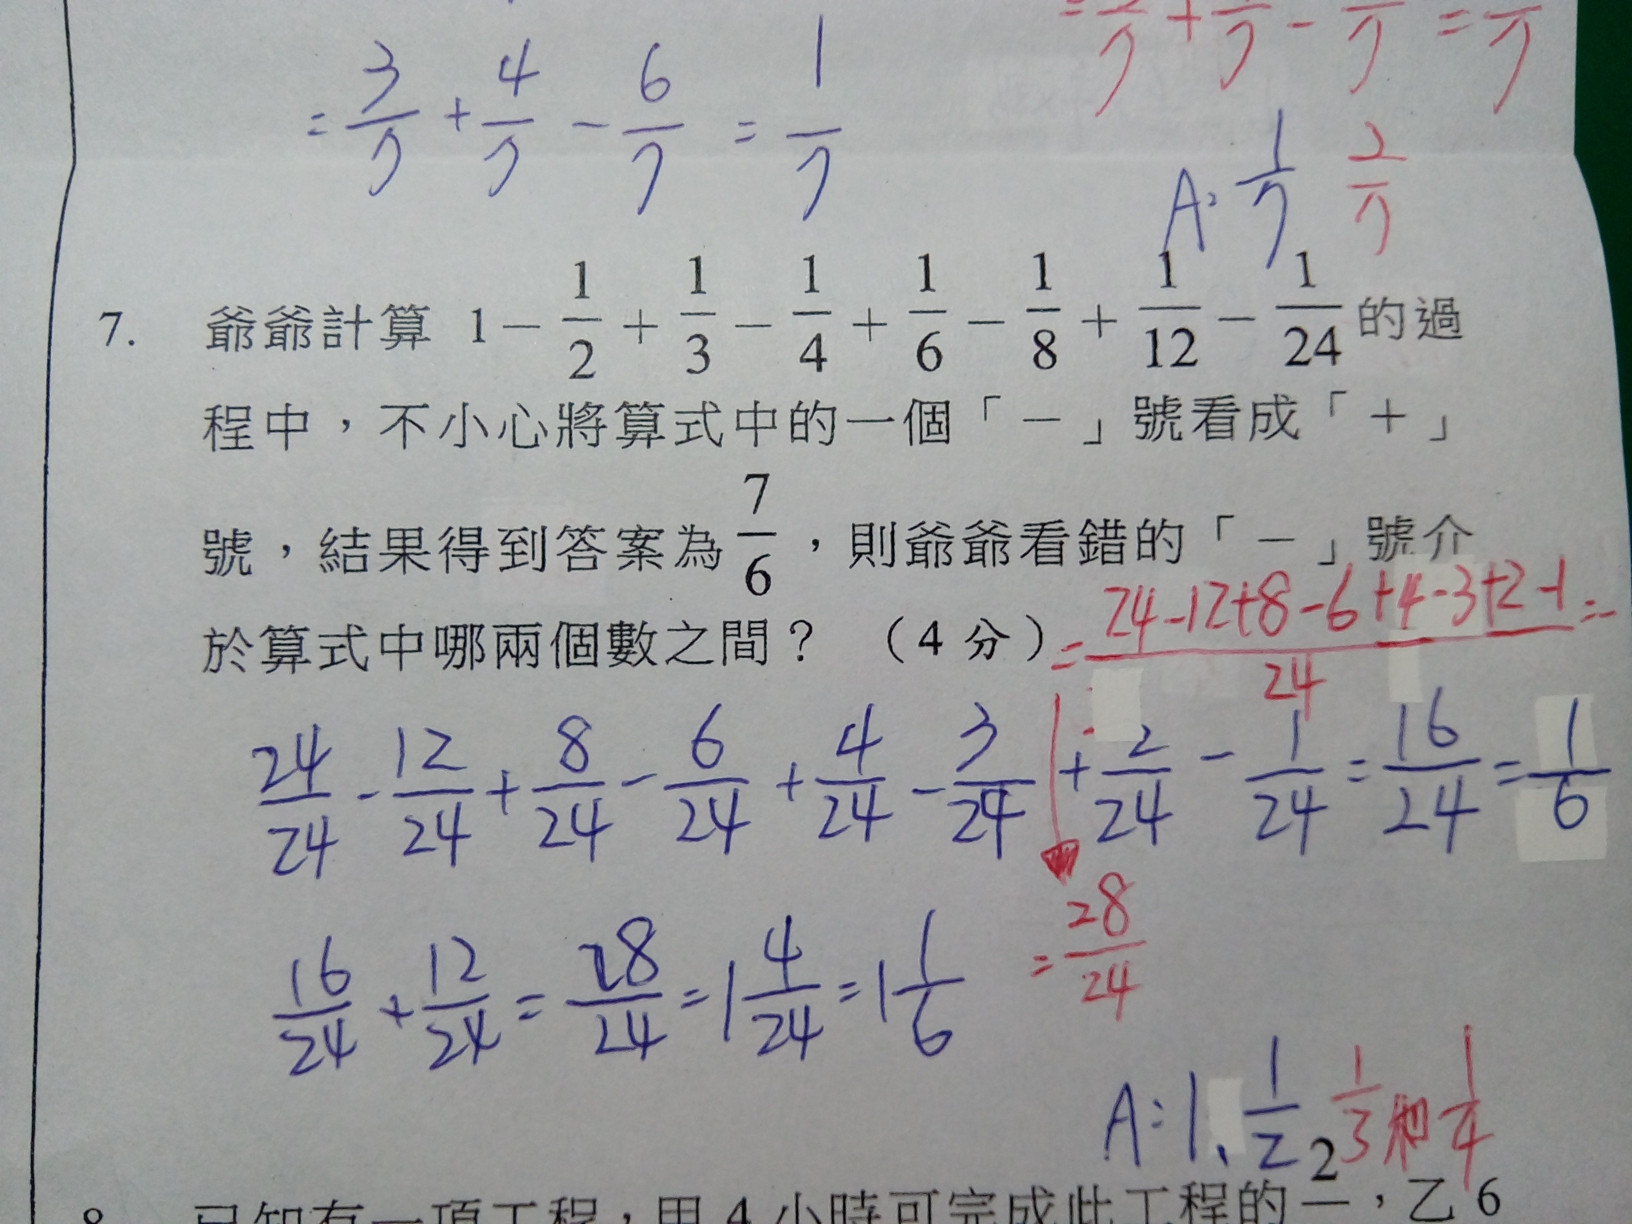 = 3/7 + 4/7 - 6/7 = 1/7
A: 1/7 2/7
7. 爺爺計算 1 － 1/2 ＋ 1/3 － 1/4 ＋ 1/6 － 1/8 ＋ 1/12 － 1/24 的過
程中，不小心將算式中的一個「－」號看成「＋」
號，結果得到答案為 7/6 ，則爺爺看錯的「－」號介
於算式中哪兩個數之間？ （4 分）
= 24-12+8-6+4-3+2-1/24 =
24/24 - 12/24 + 8/24 - 6/24 + 4/24 - 3/24 + 2/24 - 1/24 = 16/24 = 1/6
16/24 + 12/24 = 28/24 = 1 4/24 = 1 1/6
= 28/24
A: 1、1/2 1/3 和 1/4
8. 已知有一項工程，甲 4 小時可完成此工程的 2 ，乙 6